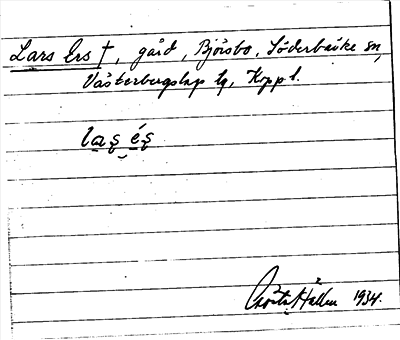 Lars Ers †, gård, Björsbo, Söderbärke sn,
Västerbergslags tg, Kopp l.
las és
Gösta Hallen 1934.